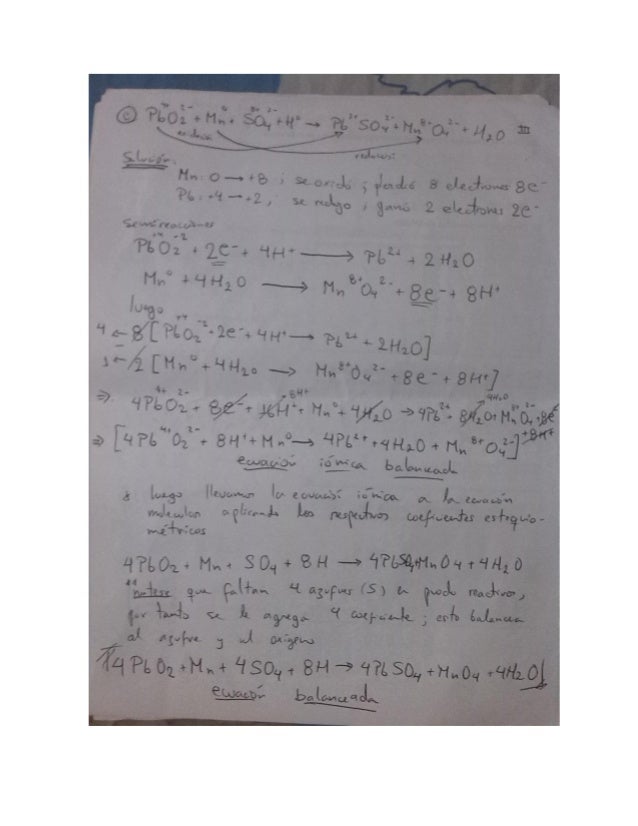 c) Pb⁴⁺O₂²⁻ + Mn⁰ + S⁸⁺O₄²⁻ + H⁰ → Pb²⁺SO₄²⁻ + Mn⁸⁺O₄²⁻ + H₂O
Solución:
Mn: 0 → +8 ; se oxidó ; perdió 8 electrones 8e⁻
Pb: +4 → +2, ; se redujo ; ganó 2 electrones 2e⁻
Semireacciones
Pb⁺⁴O₂⁻² + 2e⁻ + 4H⁺ → Pb²⁺ + 2H₂O
Mn⁰ + 4H₂O → Mn⁸⁺O₄²⁻ + 8e⁻ + 8H⁺
luego
4 ← 8 [Pb⁺⁴O₂⁻² + 2e⁻ + 4H⁺ → Pb²⁺ + 2H₂O]
1 ← 2 [Mn⁰ + 4H₂O → Mn⁸⁺O₄²⁻ + 8e⁻ + 8H⁺]
⇒ 4Pb⁴⁺O₂²⁻ + 8e⁻ + 16H⁺ 8H⁺ + Mn⁰ + 4H₂O → 4Pb²⁺ + 8H₂O 4H₂O + Mn⁸⁺O₄²⁻ + 8e⁻ + 8H⁺
⇒ [4Pb⁴⁺O₂²⁻ + 8H⁺ + Mn⁰ → 4Pb²⁺ + 4H₂O + Mn⁸⁺O₄²⁻]
ecuación iónica balanceada
luego llevamos la ecuación iónica a la ecuación
molecular aplicando los respectivos coeficientes estequio-
métricos
4PbO₂ + Mn + SO₄ + 8H → 4PbSO₄ + MnO₄ + 4H₂O
**nótese que faltan 4 azufres (S) en reactivos,
por tanto se le agrega 4 coeficiente ; esto balancea
al azufre y al oxígeno
4PbO₂ + Mn + 4SO₄ + 8H → 4PbSO₄ + MnO₄ + 4H₂O
ecuación balanceada